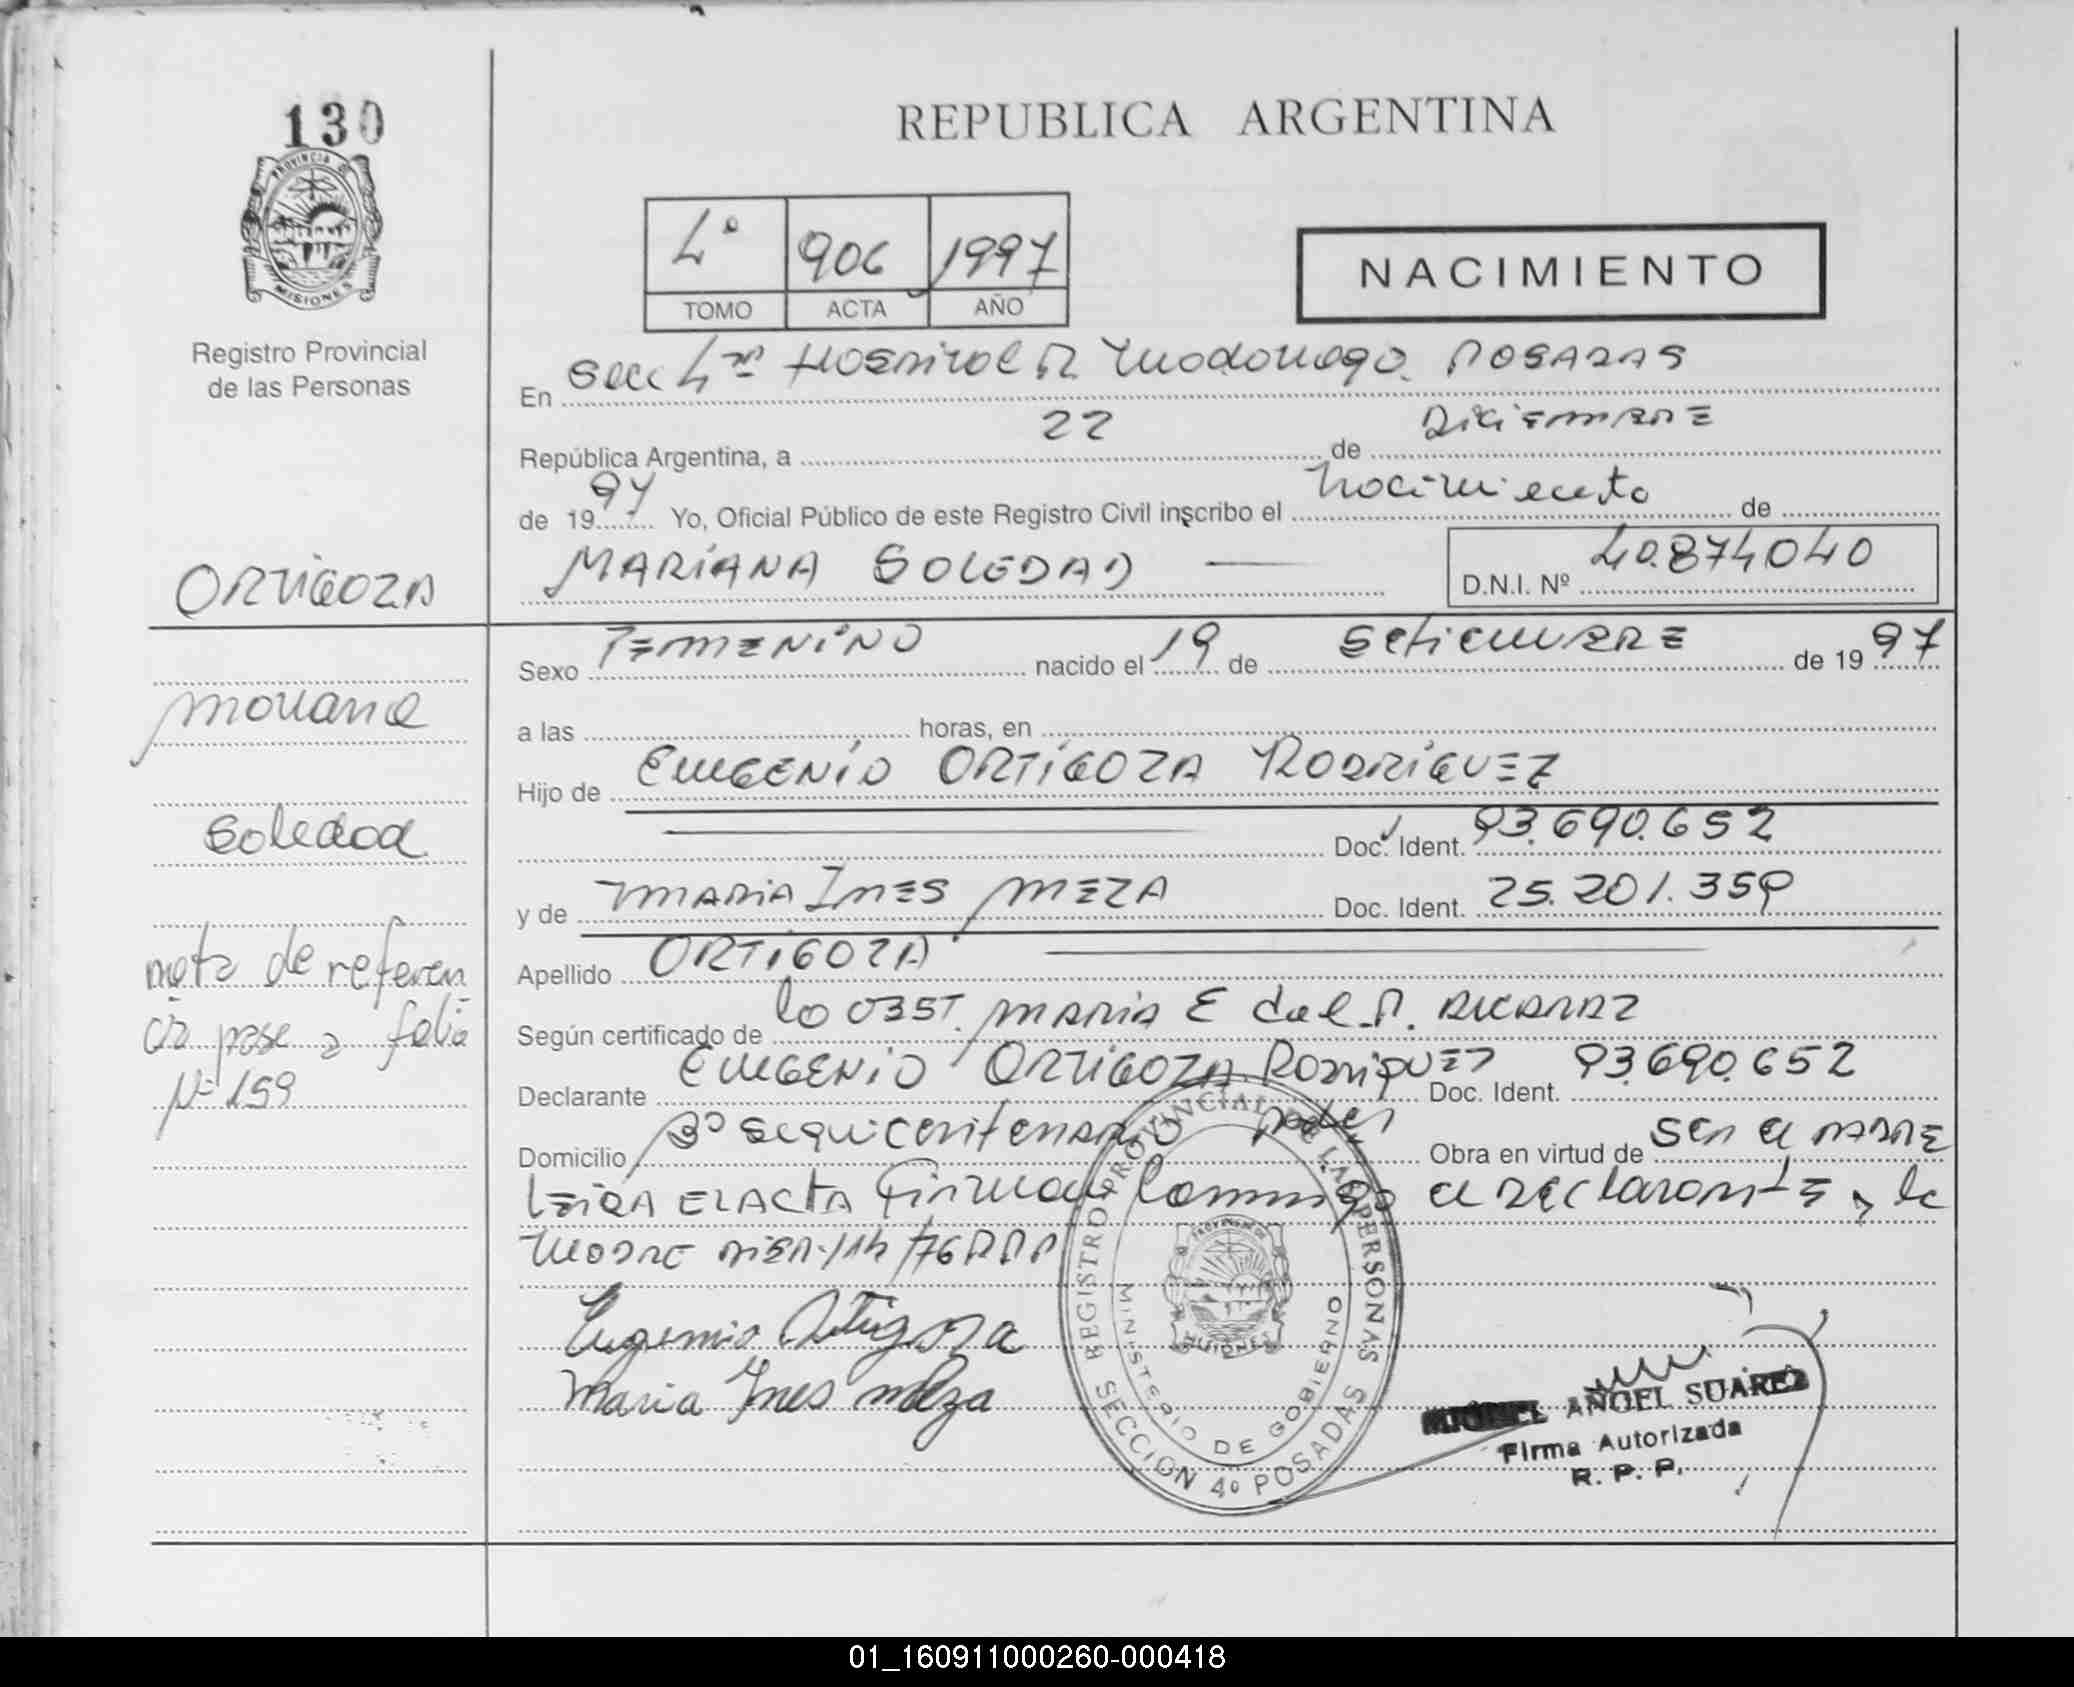 130
PROVINCIA DE
MISIONES
Registro Provincial
de las Personas
REPUBLICA ARGENTINA
4º 906 1997
TOMO ACTA AÑO
NACIMIENTO
En Secc 4ta Hospital R Madariaga POSADAS
República Argentina, a 22 de DICIEMBRE
de 1997 Yo, Oficial Público de este Registro Civil inscribo el Nacimiento de
MARIANA SOLEDAD
D.N.I. Nº 40.874040
ORTIGOZA
Mariana
Soledad
nota de referen
cia pase a folio
Nº 159
Sexo FEMENINO nacido el 19 de SETIEMBRE de 1997
a las horas, en
Hijo de EUGENIO ORTIGOZA RODRIGUEZ
Doc. Ident. 93.690.652
y de MARIA INES MEZA Doc. Ident. 25.201.359
Apellido ORTIGOZA
Según certificado de la OBST. MARIA E del P.
Declarante EUGENIO ORTIGOZA RODRIGUEZ Doc. Ident. 93.690.652
Domicilio Bº Sesquicentenario Pdas Obra en virtud de Ser el PADRE
LEIDA EL ACTA Firman Conmigo el DECLARANTE y la
MADRE
Eugenio Ortigoza
Maria Ines Meza
REGISTRO PROVINCIAL DE LAS PERSONAS
MINISTERIO DE GOBIERNO
SECCION 4º POSADAS
MIGUEL ANGEL SUAREZ
Firma Autorizada
R. P. P.
01_160911000260-000418